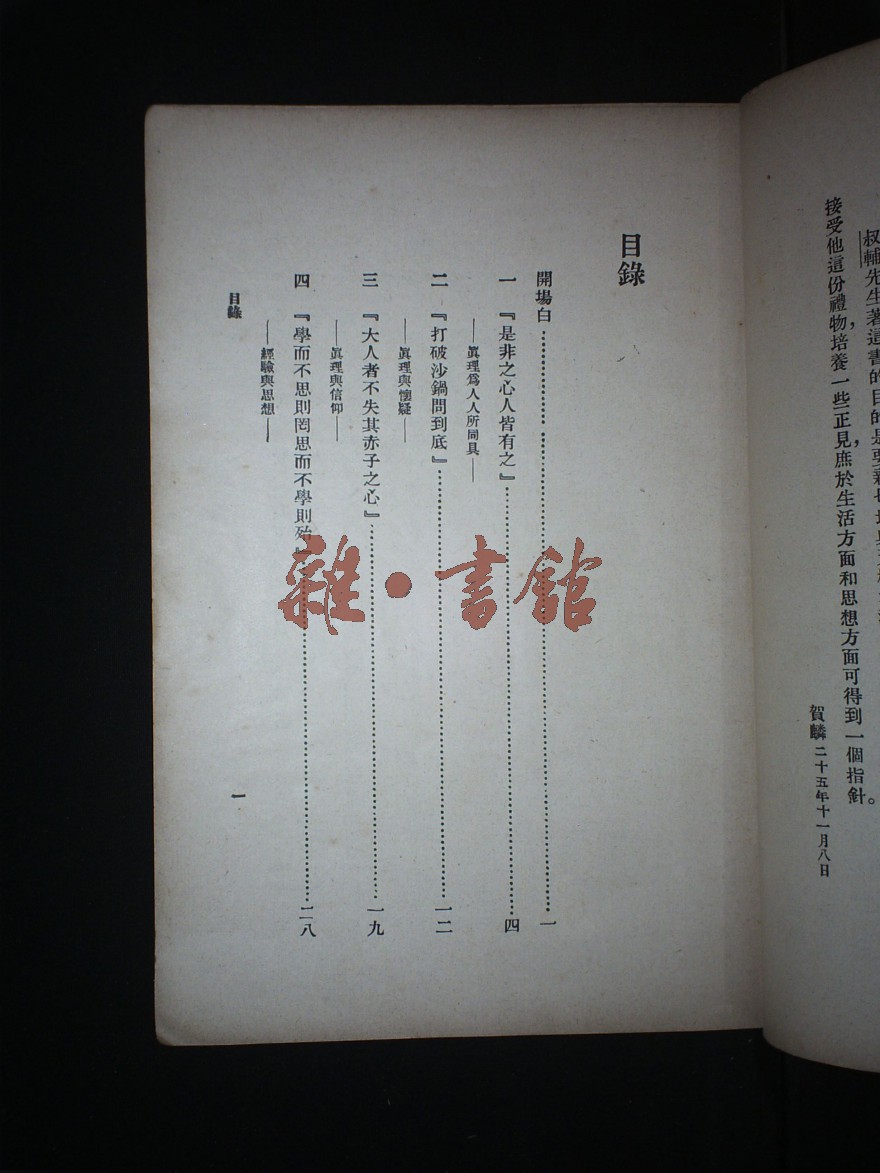 叔輔先生著這書的目的是要
接受他這份禮物，培養一些正見，庶於生活方面和思想方面可得到一個指針。
賀麟 二十五年十一月八日
目錄
開場白……一
一 『是非之心人皆有之』……四
——眞理爲人人所同具——
二 『打破沙鍋問到底』……一二
——眞理與懷疑——
三 『大人者不失其赤子之心』……一九
——眞理與信仰——
四 『學而不思則罔思而不學則殆』……二八
——經驗與思想——
目錄
一
雜·書館